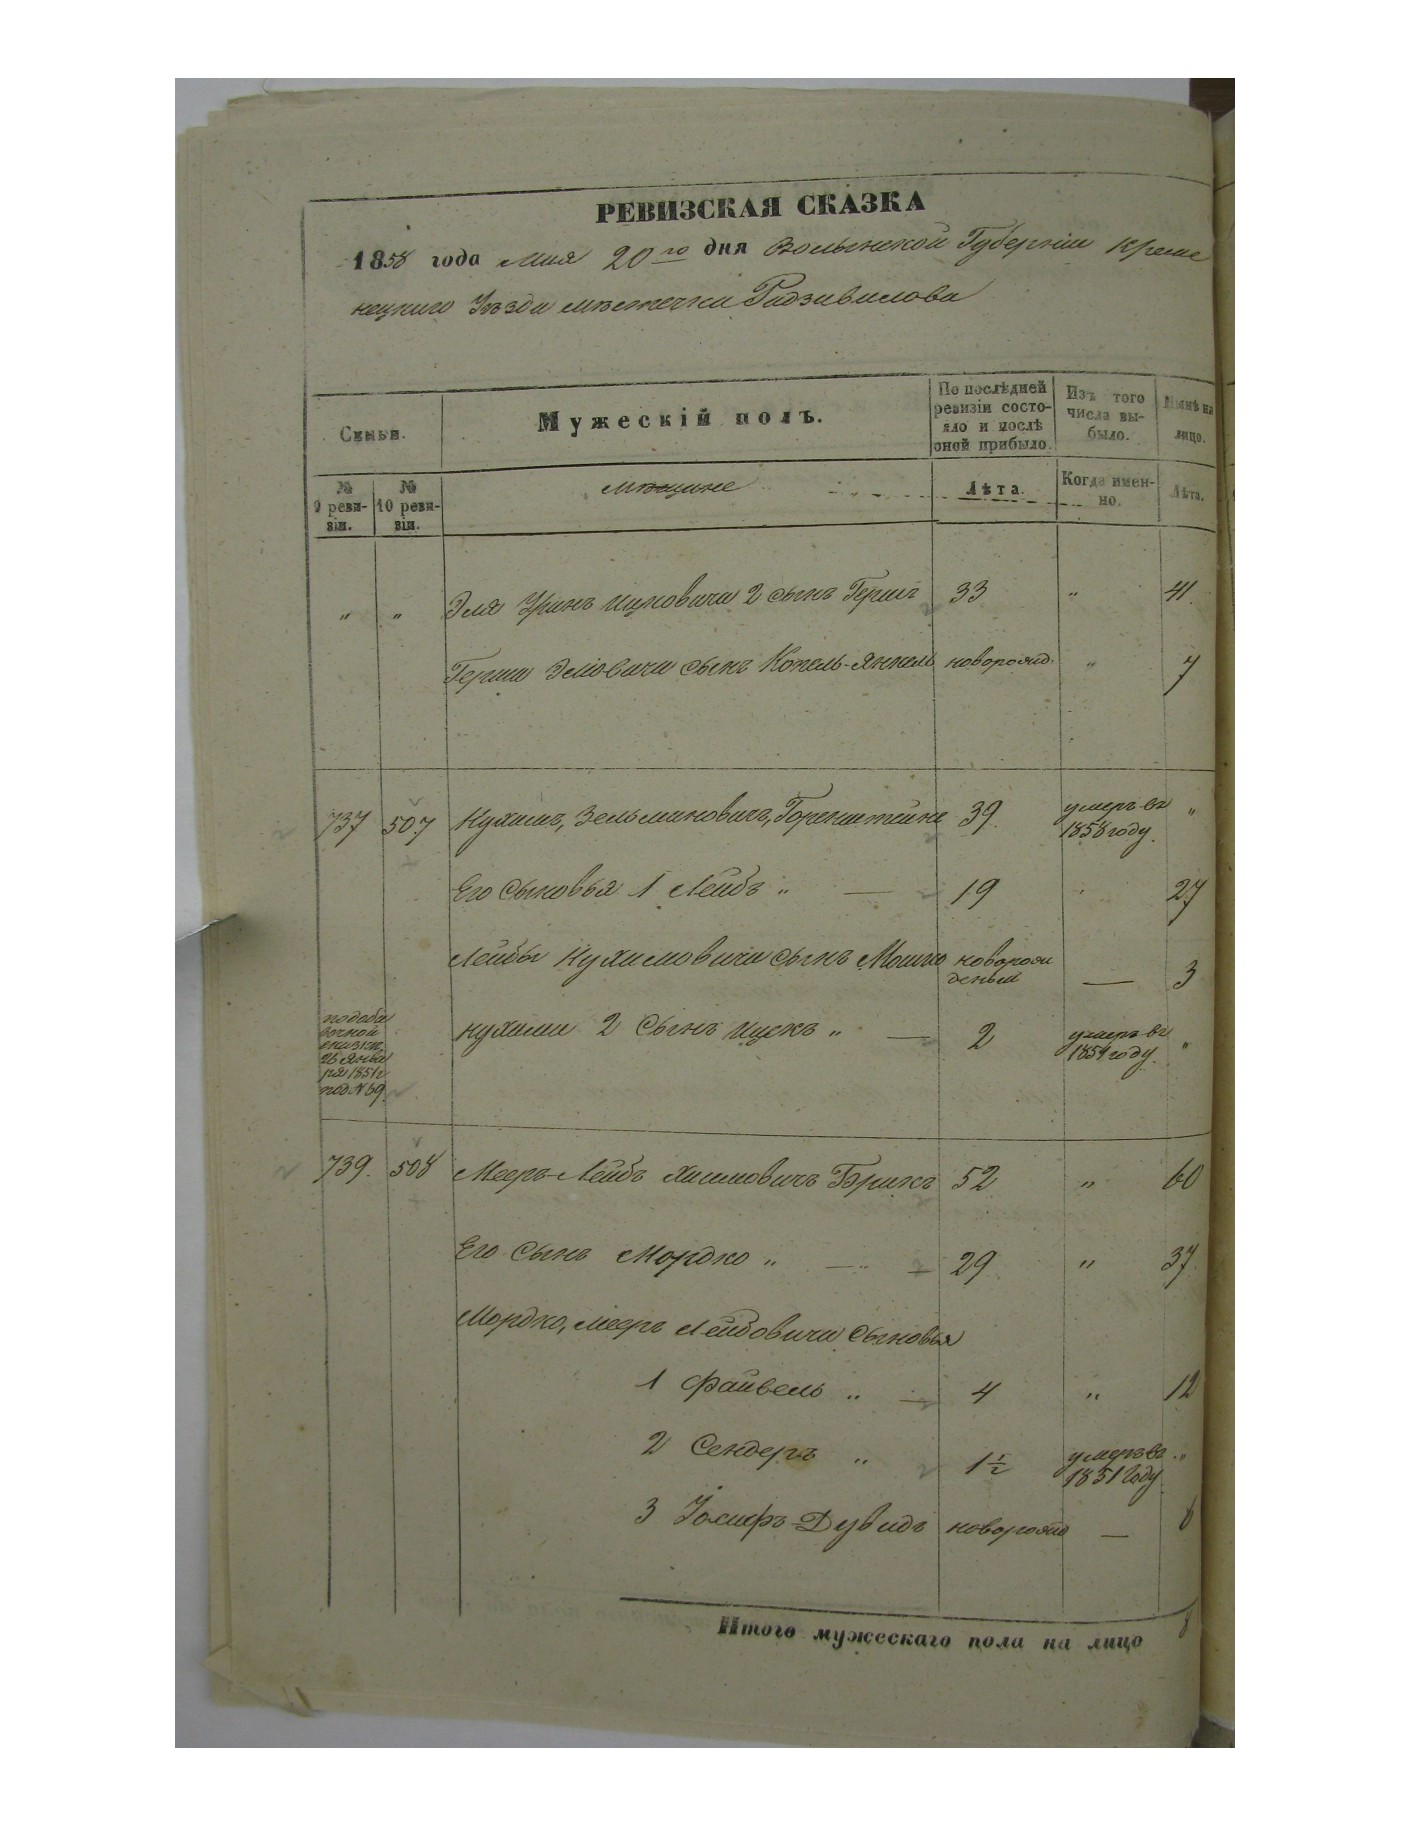 РЕВИЗСКАЯ СКАЗКА
1858 года Мая 20го дня Волынской Губерніи Креме
нецкаго Уѣзда мѣстечка Радзивилова
Семьи.
Мужескій полъ.
По послѣдней ревизіи состо-
яло и послѣ
оной прибыло.
Изъ того
числа вы-
было.
Нынѣ на
лицо.
№
9 реви-
зіи.
№
10 реви-
зіи.
мѣщане
Лѣта.
Когда имен-
но.
Лѣта.
„ „ Эля Ицковича 2 сынъ Гершъ 33 „ 41.
Герша Эліовича сынъ Копель-Янкель новорожд. „ 7
737 507 Нухимъ, Зельмановичъ, Горенштейнъ 39. умеръ въ 1858 году. „
Его Сыновья 1 Лейбъ „ — 19 27
Лейбы Нухимовича сынъ Мошко новорож
деный — 3
подоба
вочной
сказки
26 Янва
ря 1851 г
под № 69.
Нухима 2 Сынъ Ицекъ „ — 2 умеръ въ 1854 году. „
739. 508 Мееръ-Лейбъ Хаимовичъ 52 „ 60
Его Сынъ Мордко „ — 29 „ 37.
Мордко, Мееръ Лейбовича Сыновья
1 Файвель „ — 4 „ 12
2 Сендеръ „ 1½ умеръ въ 1851 Году. „
3 Іосифъ-Дувидъ новорожд — 6
Итого мужескаго пола на лицо 8